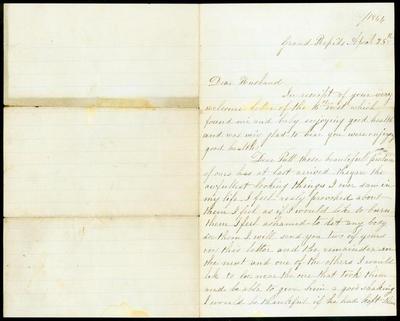 /1864
Grand Rapids Sept 25th
Dear Husband
In receipt of your very
welcome letter of the inst which
found me and baby enjoying good health
and was very glad to hear you were enjoying
good health.
Dear Bill those beautiful pictures
of ours has at last arrived theyre the
awfullest looking things I ever saw in
my life I feel really provoked about
them I feel as if I would like to burn
them I feel ashamed to let any body
see them I will send you two of yours
in this letter and the remainder in
the next and one of the others I would
like to be near the one that took them
and be able to give him a good shaking
I would be thankful if he had kept them